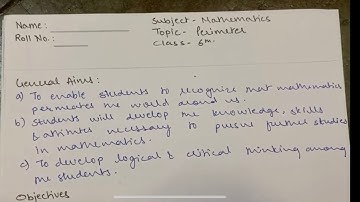 Name:
Subject- Mathematics
Roll No.:
Topic- Perimeter
Class- 6th
General Aims:
a) To enable students to recognize that mathematics
permeates the world around us.
b) Students will develop the knowledge, skills
& attitudes necessary to pursue further studies
in mathematics.
c) To develop logical & critical thinking among
the students.
Objectives